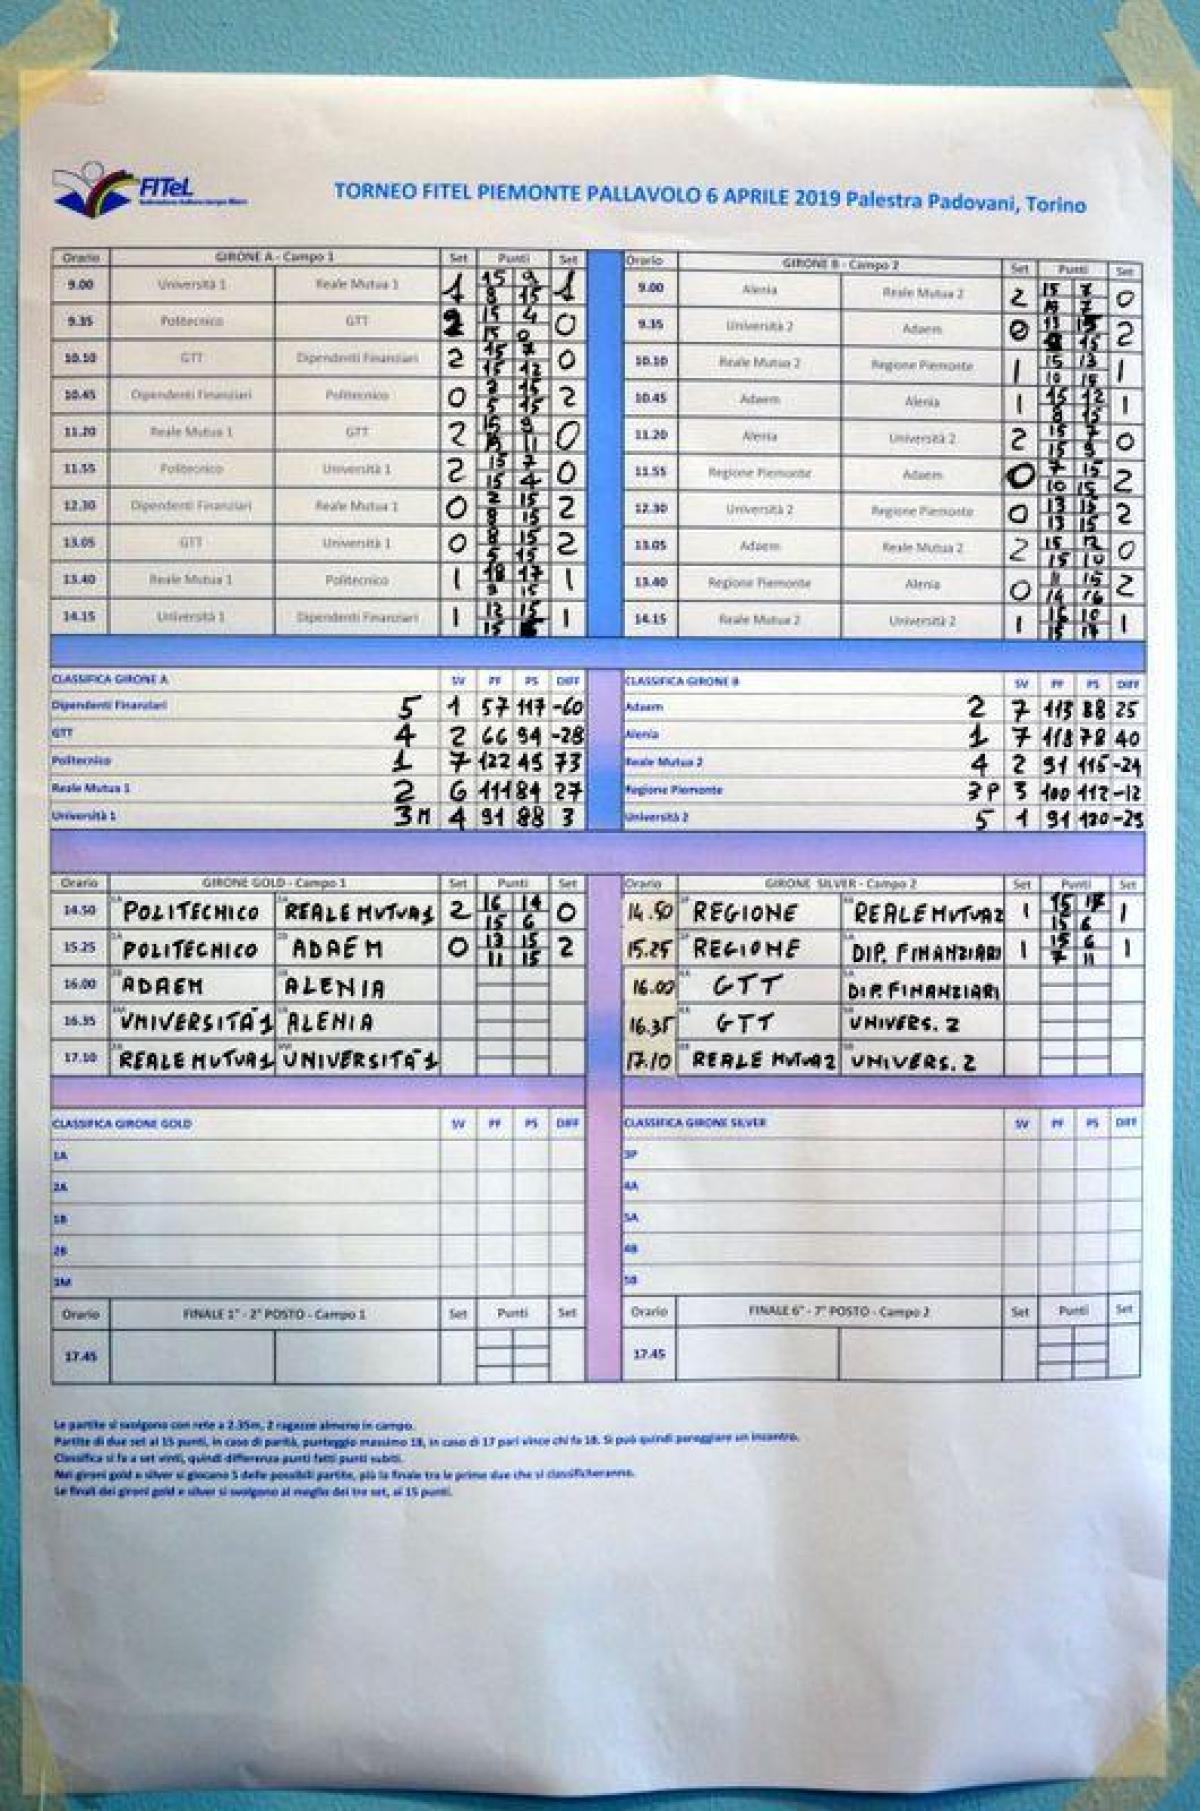 FITeL
TORNEO FITEL PIEMONTE PALLAVOLO 6 APRILE 2019 Palestra Padovani, Torino
Orario GIRONE A - Campo 1 Set Punti Set
9.00 Università 1 Reale Mutua 1 1 15 9 1
8 15
9.35 Politecnico GTT 2 15 4 0
15 0
10.10 GTT Dipendenti Finanziari 2 15 7 0
15 12
10.45 Dipendenti Finanziari Politecnico 0 15 2
5 15
11.20 Reale Mutua 1 GTT 2 15 9 0
11
11.55 Politecnico Università 1 2 15 7 0
15 4
12.30 Dipendenti Finanziari Reale Mutua 1 0 2 15 2
8 15
13.05 GTT Università 1 0 8 15 2
5 15
13.40 Reale Mutua 1 Politecnico 1 18 17 1
9 15
14.15 Università 1 Dipendenti Finanziari 1 12 15 1
15
Orario GIRONE B - Campo 2 Set Punti Set
9.00 Alenia Reale Mutua 2 2 15 7 0
7
9.35 Università 2 Adaem 0 13 15 2
15
10.10 Reale Mutua 2 Regione Piemonte 1 15 13 1
10 15
10.45 Adaem Alenia 1 15 12 1
8 15
11.20 Alenia Università 2 2 15 7 0
15 9
11.55 Regione Piemonte Adaem 0 7 15 2
10 15
12.30 Università 2 Regione Piemonte 0 13 15 2
13 15
13.05 Adaem Reale Mutua 2 2 15 12 0
15 10
13.40 Regione Piemonte Alenia 0 11 15 2
14 16
14.15 Reale Mutua 2 Università 2 1 10 1
15 17
CLASSIFICA GIRONE A SV PF PS DIFF
Dipendenti Finanziari 5 1 57 117 -60
GTT 4 2 66 94 -28
Politecnico 1 7 122 49 73
Reale Mutua 1 2 6 111 84 27
Università 1 3M 4 91 88 3
CLASSIFICA GIRONE B SV PF PS DIFF
Adaem 2 7 113 88 25
Alenia 1 7 118 78 40
Reale Mutua 2 4 2 91 115 -24
Regione Piemonte 3P 3 100 112 -12
Università 2 5 1 91 120 -29
Orario GIRONE GOLD - Campo 1 Set Punti Set
14.50 POLITECHICO REALE MUTUA 1 2 16 14 0
15 6
15.25 POLITECHICO ADAEM 0 13 15 2
11 15
16.00 ADAEM ALENIA
16.35 UNIVERSITÀ 1 ALENIA
17.10 REALE MUTUA 1 UNIVERSITÀ 1
Orario GIRONE SILVER - Campo 2 Set Punti Set
14.50 REGIONE REALE MUTUA 2 1 1
15 6
15.25 REGIONE DIP. FINANZIARI 1 15 6 1
7 11
16.00 GTT DIP. FINANZIARI
16.35 GTT UNIVERS. 2
17.10 REALE MUTUA 2 UNIVERS. 2
CLASSIFICA GIRONE GOLD SV PF PS DIFF
1A
2A
1B
2B
3M
CLASSIFICA GIRONE SILVER SV PF PS DIFF
3P
4A
5A
4B
5B
Orario FINALE 1° - 2° POSTO - Campo 1 Set Punti Set
17.45
Orario FINALE 6° - 7° POSTO - Campo 2 Set Punti Set
17.45
Le partite si svolgono con rete a 2.35m, 2 ragazze almeno in campo.
Partite di due set ai 15 punti, in caso di parità, punteggio massimo 18, in caso di 17 pari vince chi fa 18. Si può quindi pareggiare un incontro.
Classifica si fa a set vinti, quindi differenza punti fatti punti subiti.
Nei gironi gold e silver si giocano 5 delle possibili partite, più la finale tra le prime due che si classificheranno.
Le finali dei gironi gold e silver si svolgono al meglio dei tre set, ai 15 punti.